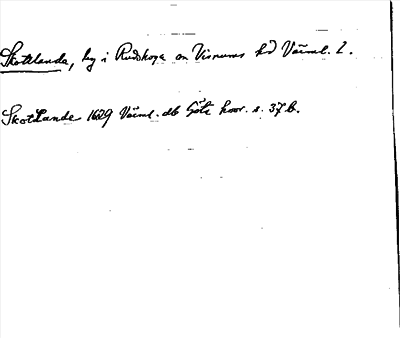 Skottlanda, hg i Rudskoga sn Visnums hd Värml. l.
Skotlande 1629 Värml. db Göta hovr. s. 37 b.